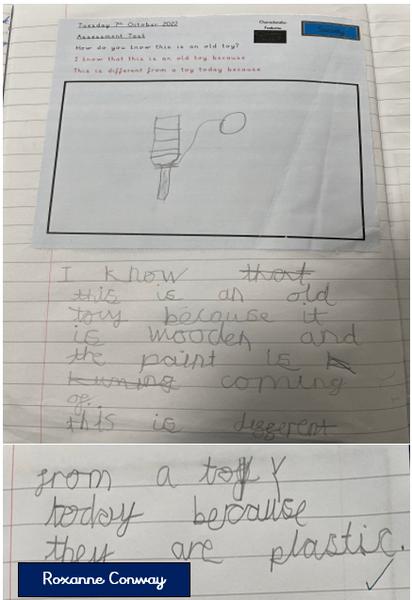 Tuesday 7th October 2022
Assessment Task
How do you know this is an old toy?
I know that this is an old toy because
This is different from a toy today because
Characteristic
Features
I know that
this is an old
toiy because it
is wooden and
the paint is k
kuming coming
of.
this is diggerent
from a toy y
today because
they are plastic.
Roxanne Conway